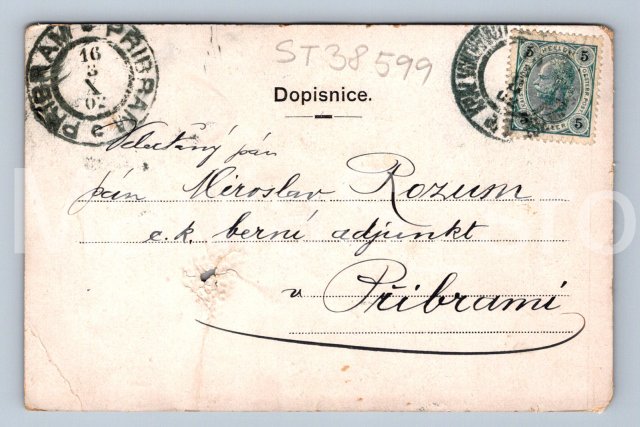 PŘÍBRAM PŘIBRAM
16
ST38599
5 5
Dopisnice.
5 5
Velectěný pán
pán Miroslav Rozum
c. k. berní adjunkt
v Příbrami